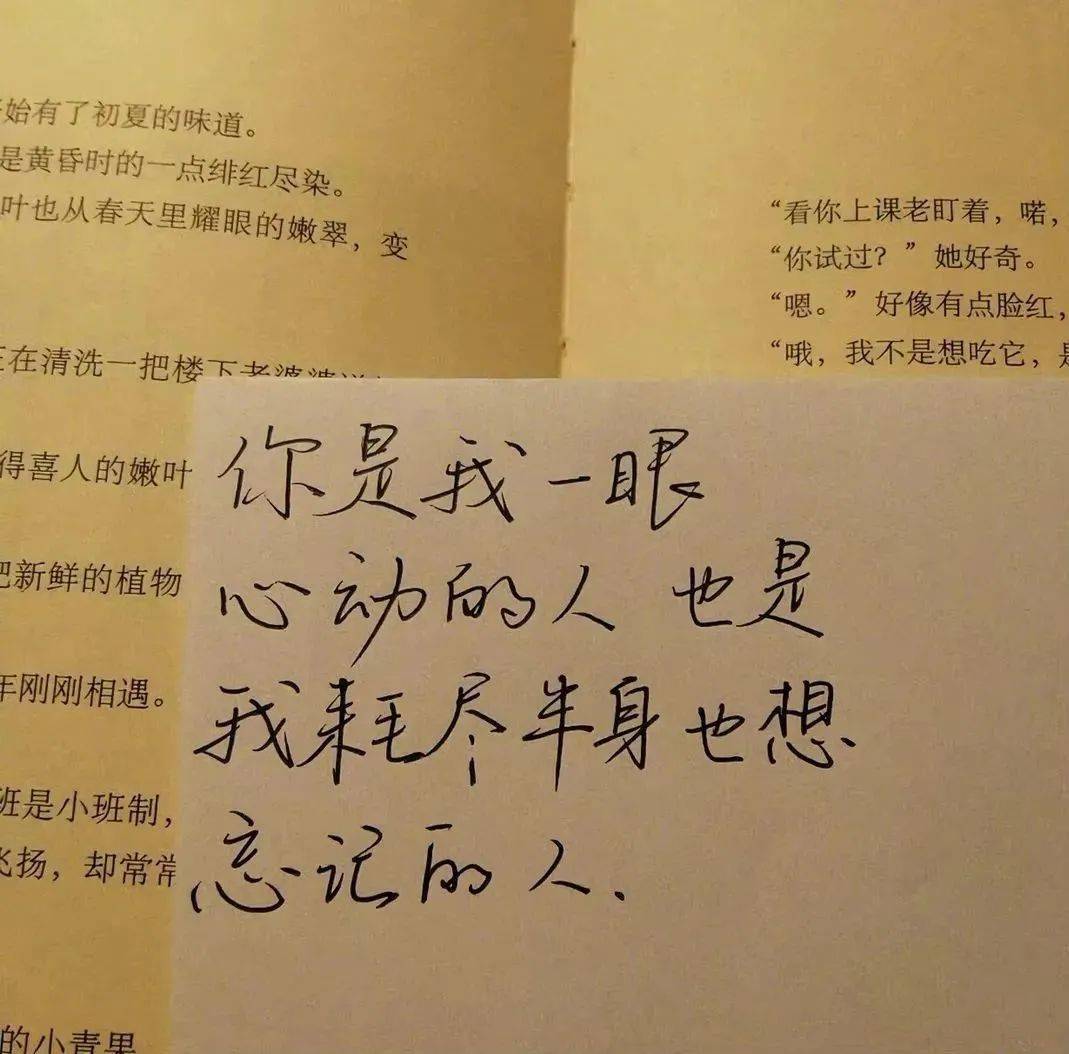 始有了初夏的味道。
是黄昏时的一点绯红尽染。
叶也从春天里耀眼的嫩翠，变
在清洗一把楼下老婆婆送
得喜人的嫩叶
把新鲜的植物
年刚刚相遇。
班是小班制，
飞扬，却常常
的小青果
“看你上课老盯着，喏，
“你试过？”她好奇。
“嗯。”好像有点脸红，
“哦，我不是想吃它，是
你是我一眼
心动的人 也是
我耗尽半身也想
忘记的人.